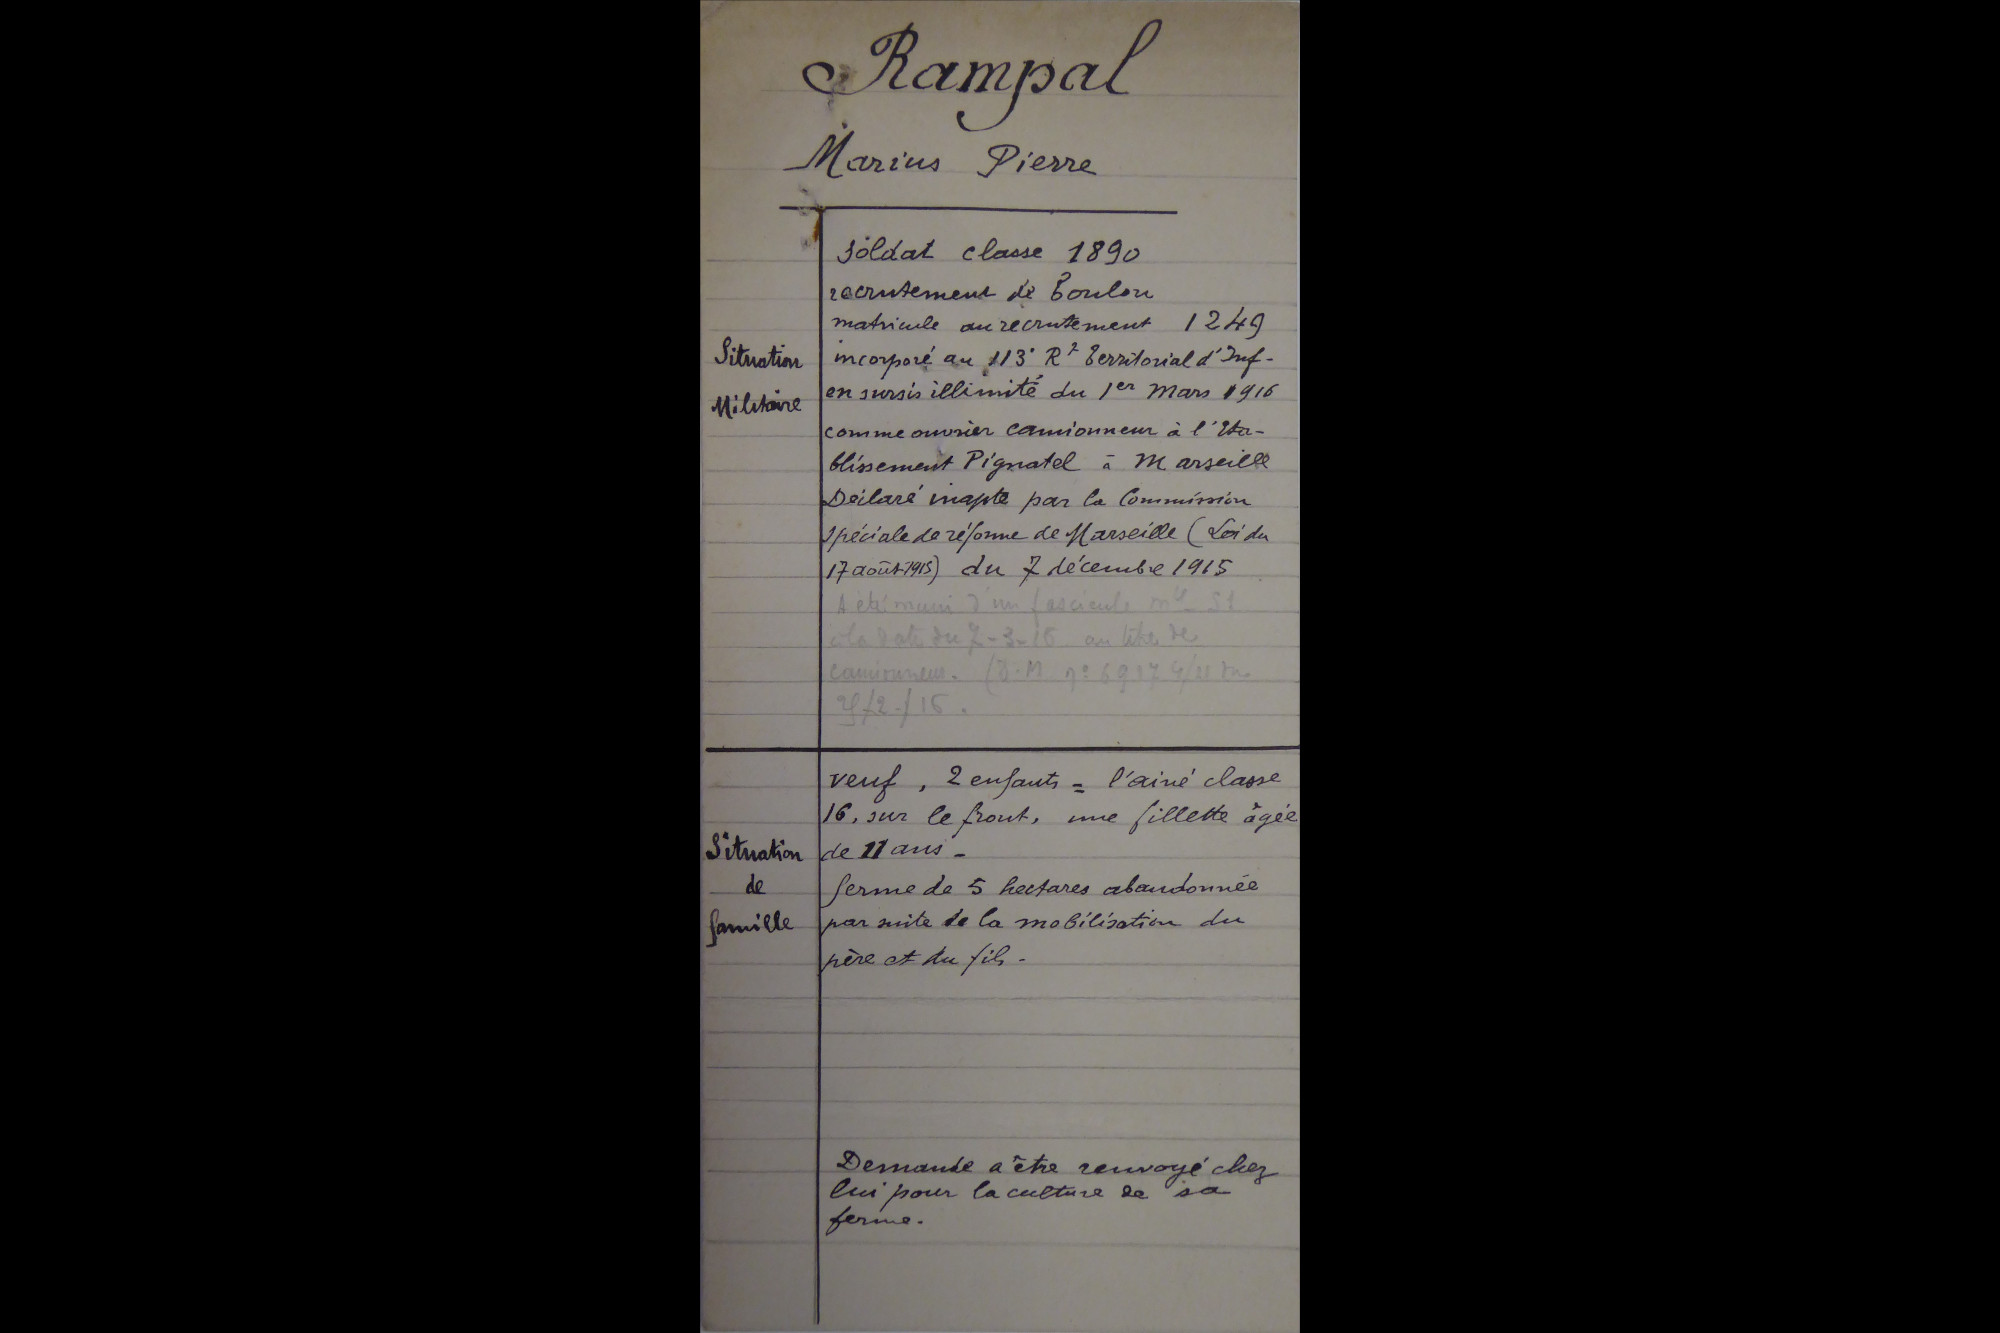 Rampal
Marius Pierre
Situation
Militaire
Soldat classe 1890
recrutement de Toulon
matricule au recrutement 1249
incorporé au 113e Rt Territorial d'Inf-
en sursis illimité du 1er Mars 1916
comme ouvrier camionneur à l'Eta-
blissement Pignatel à Marseille
Déclaré inapte par la Commission
Spéciale de réforme de Marseille (Loi du
17 août 1915) du 7 décembre 1915
A été muni d'un fascicule
à la date du 7-3-16 au titre de
camionneur. (D.M. n°
Situation
de
famille
veuf, 2 enfants = l'ainé classe
16, sur le front, une fillette âgée
de 11 ans -
ferme de 5 hectares abandonnée
par suite de la mobilisation du
père et du fils -
Demande a être renvoyé chez
lui pour la culture de sa
ferme.